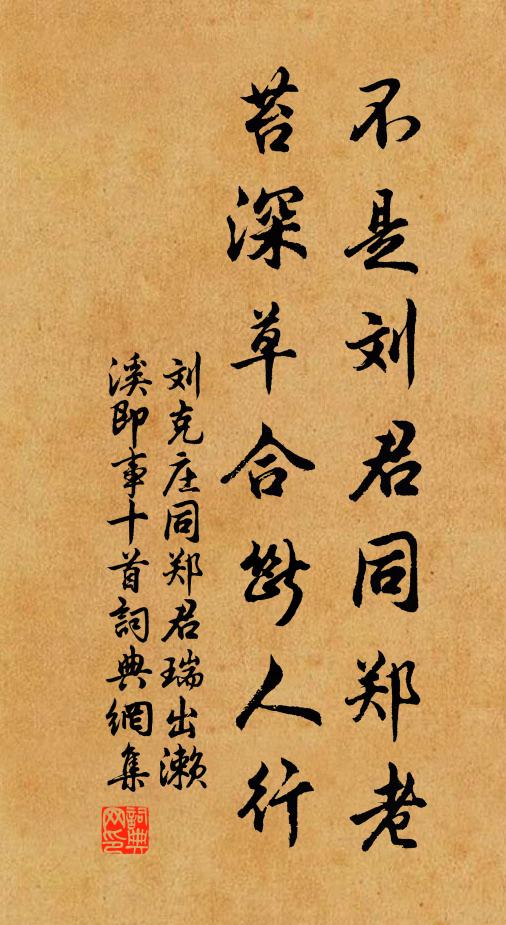 不是刘君同郑老
苔深草合断人行
刘克庄同郑君瑞出濑
溪即事十首詞典網集
詞典网印